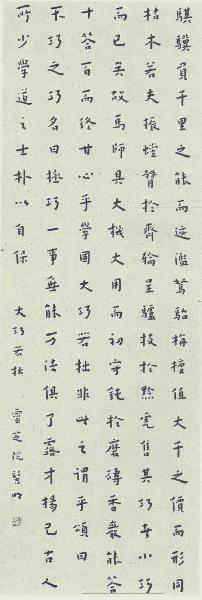 騏驥負千里之能而逆濫駑駘栴檀值大千之價而形同
枯木若夫振螳臂於齊輪呈驢技於黔虎售其巧者小巧
而已矣故馬師具大機大用而初守鈍於磨磚香嚴能答
十答百而終甘心乎學圃大巧若拙非此之謂乎頌曰
不巧之巧名曰極巧一事無能万法俱了露才揚己古人
所少學道之士朴以自保　大巧若拙　雪芝院賢明